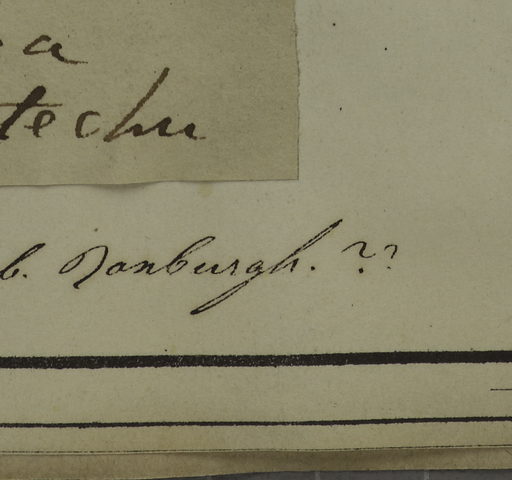 a
techu
b. Roxburgh. ??